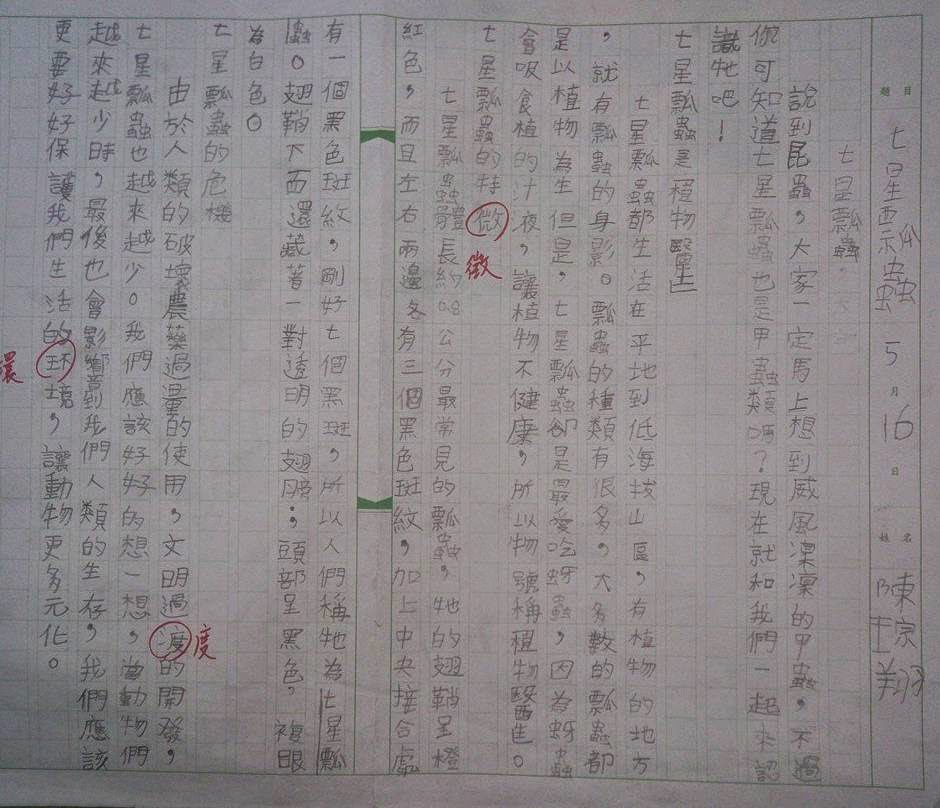 題目 七星瓢蟲 5月16日 姓名 陳 翔
七星瓢蟲
說到昆蟲，大家一定馬上想到威風凜凜的甲蟲，不過
你可知道七星瓢蟲也是甲蟲類嗎？現在就和我們一起來認
識牠吧！
七星瓢蟲是植物醫生
七星瓢蟲都生活在平地到低海拔山區，有植物的地方
，就有瓢蟲的身影。瓢蟲的種類有很多，大多數的瓢蟲都
是以植物為生但是，七星瓢蟲卻是最愛吃蚜蟲，因為蚜蟲
會吸食植的汁液，讓植物不健康，所以物號稱植物醫生。
七星瓢蟲的特微 徵
七星瓢蟲體長約0.8公分最常見的瓢蟲，牠的翅鞘呈橙
紅色，而且左右兩邊各有三個黑色斑紋，加上中央接合處
有一個黑色斑紋，剛好七個黑斑，所以人們稱牠為七星瓢
蟲。翅鞘下面還藏著一對透明的翅膀；頭部呈黑色，複眼
為白色。
七星瓢蟲的危機
由於人類的破壞農藥過量的使用，文明過渡的開發， 度
七星瓢蟲也越來越少。我們應該好好的想一想，當動物們
越來越少時，最後也會影響到我們人類的生存，我們應該
更要好好保護我們生活的环境，讓動物更多元化。 還